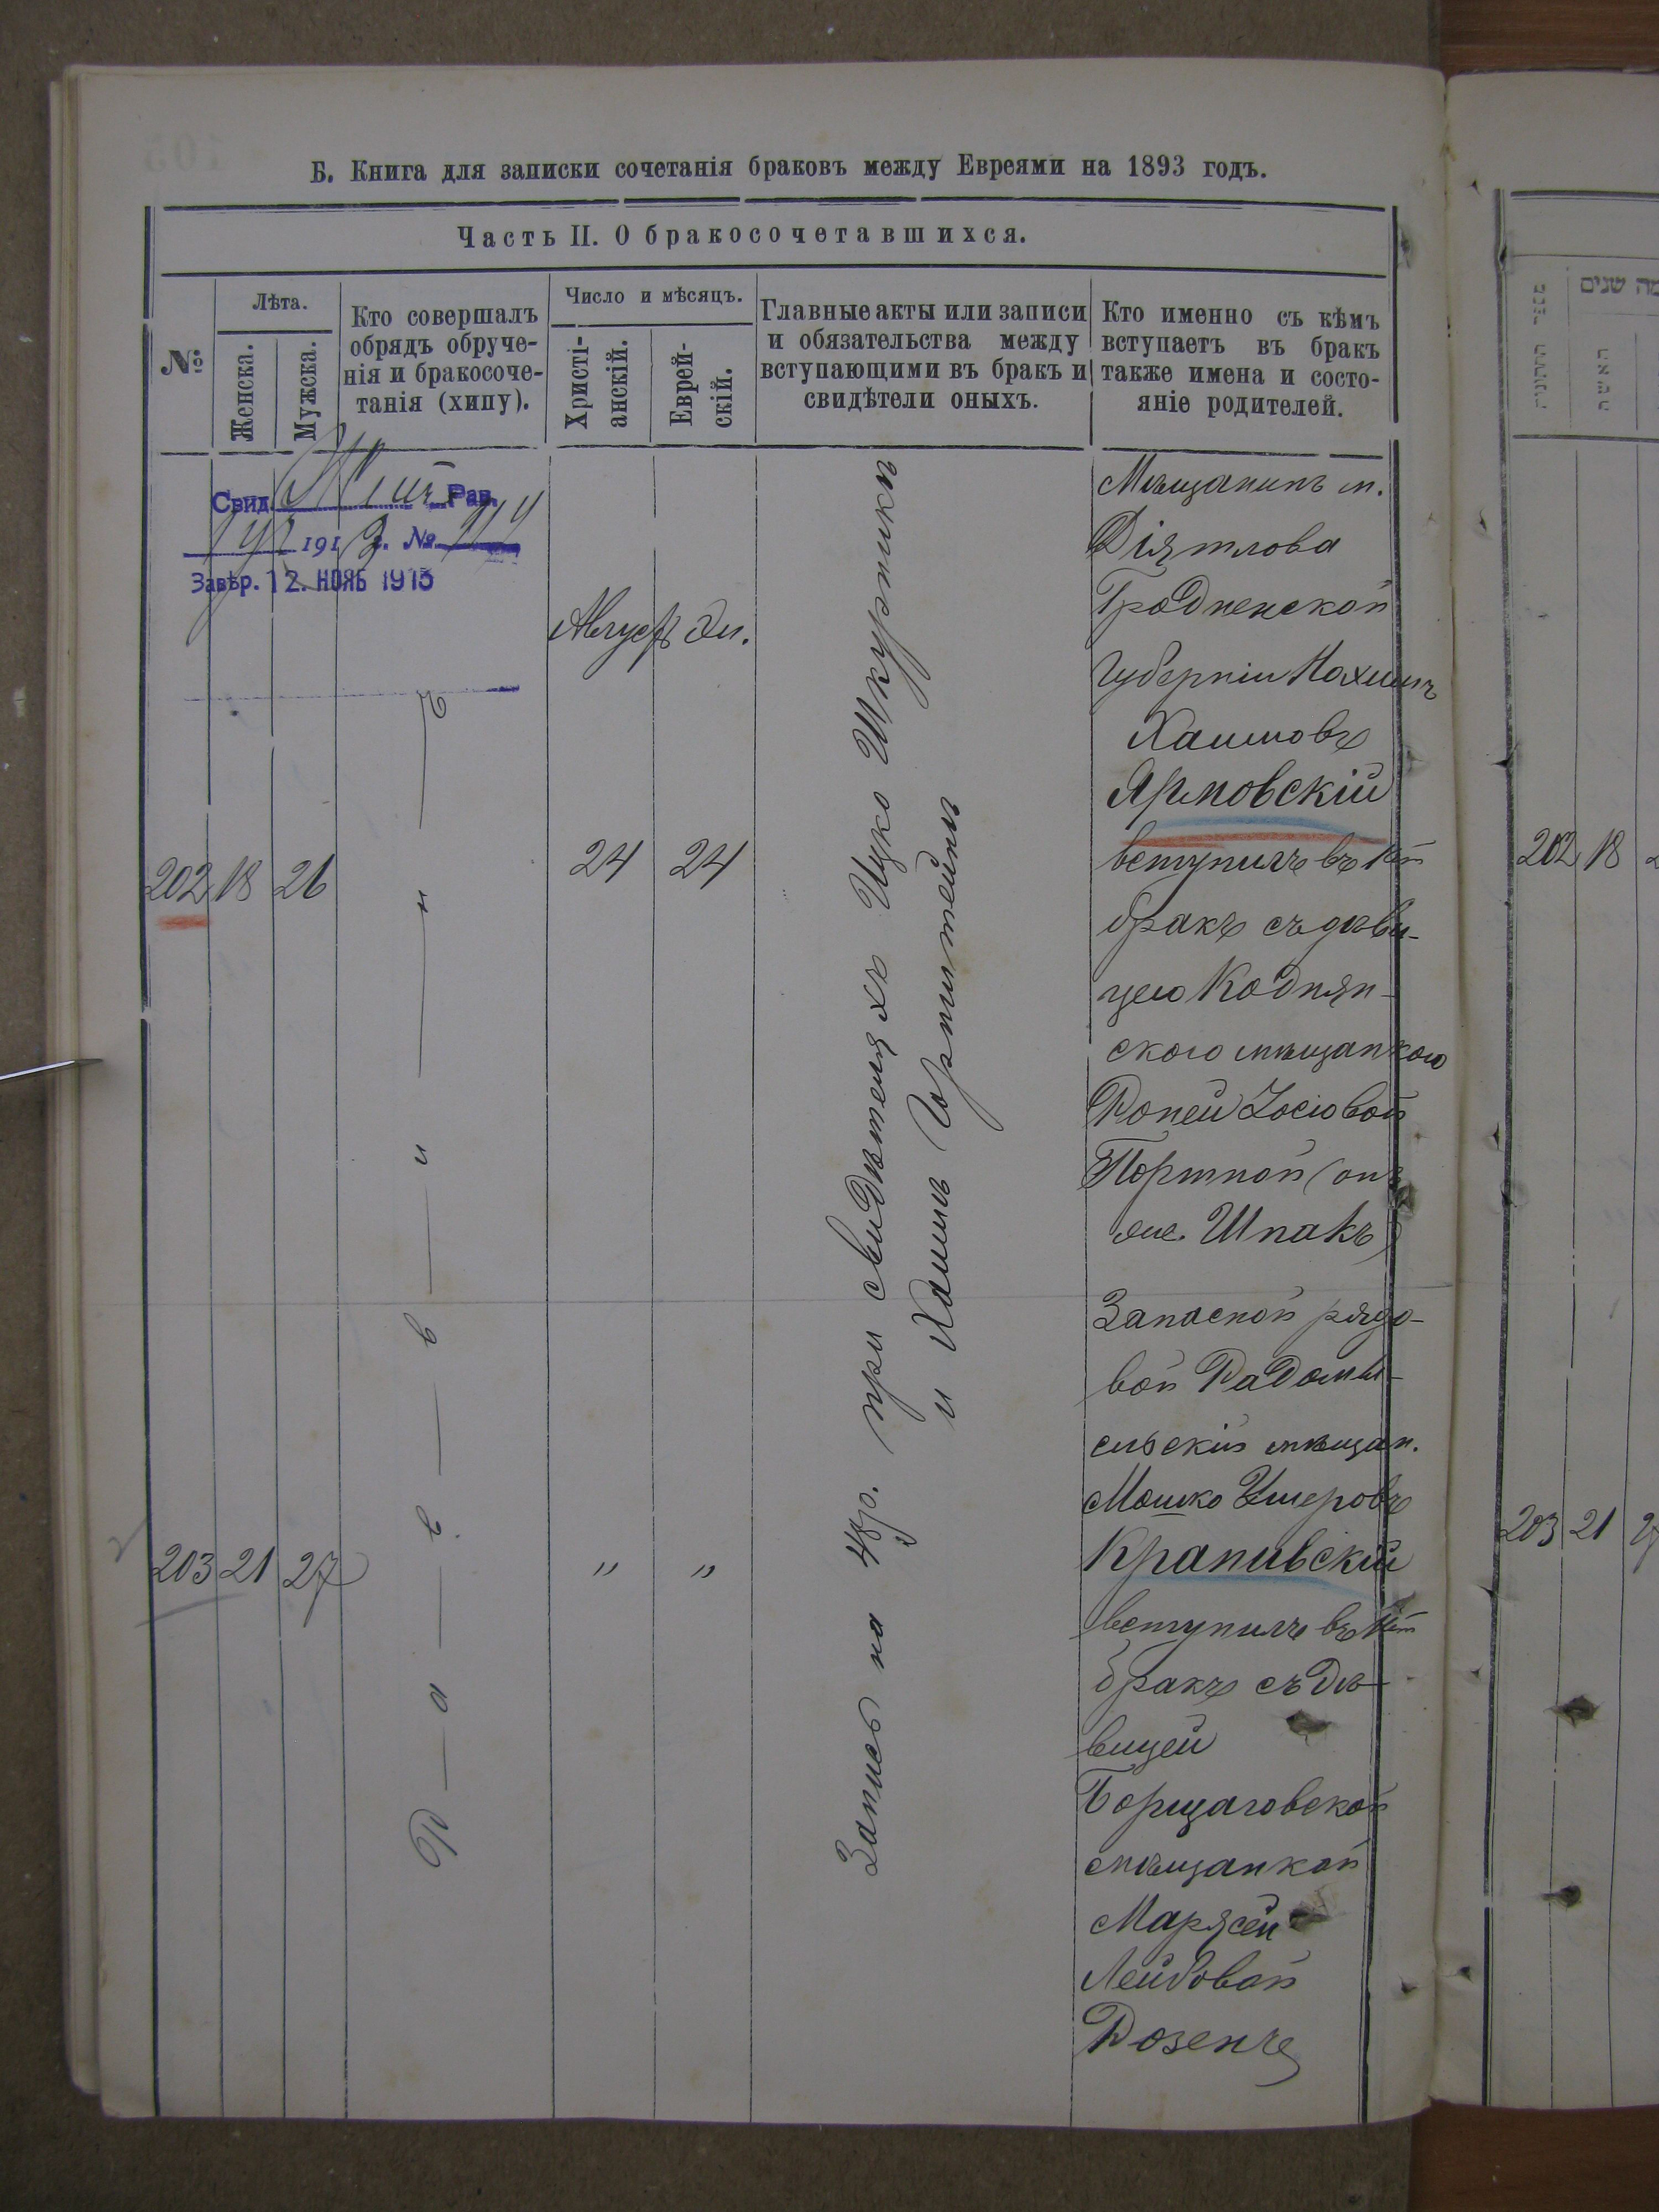 Б. Книга для записки сочетанія браковъ между Евреями на 1893 годъ.
Часть II. О бракосочетавшихся.
№
Лѣта.
Женска.
Мужска.
Кто совершалъ
обрядъ обруче-
нія и бракосоче-
танія (хипу).
Число и мѣсяцъ.
Христі-
анскій.
Еврей-
скій.
Главные акты или записи
и обязательства между
вступающими въ бракъ и
свидѣтели оныхъ.
Кто именно съ кѣмъ
вступаетъ въ бракъ
также имена и состо-
яніе родителей.
Свид. Рав.
191 3. №
Завѣр. 12. НОЯБ 1913
Августъ Эл.
202 18 26
24 24
Запись на 48 р. при свидѣтеляхъ Ицко Шкурникъ
и Хаимъ Оренштейнъ
Мѣщанинъ м.
Дiятлова
Гродненской
губерніи Нохимъ
Хаимовъ
Ярмовскій
вступилъ въ 1й
бракъ съ дѣви-
цею Коднян-
скою мѣщанкою
Ронею Іосіовой
Портной (онъ
же Шпакъ)
203 21 27
" "
Запасной рядо-
вой Радомы-
сльскій мѣщан.
Мошко Ушеровъ
Крапивскій
вступилъ въ 1й
бракъ съ дѣ-
вицей
Борщаговской
мѣщанкой
Марясей
Лейбовой
Розенъ
מה שנים
האשה
202 18
203 21